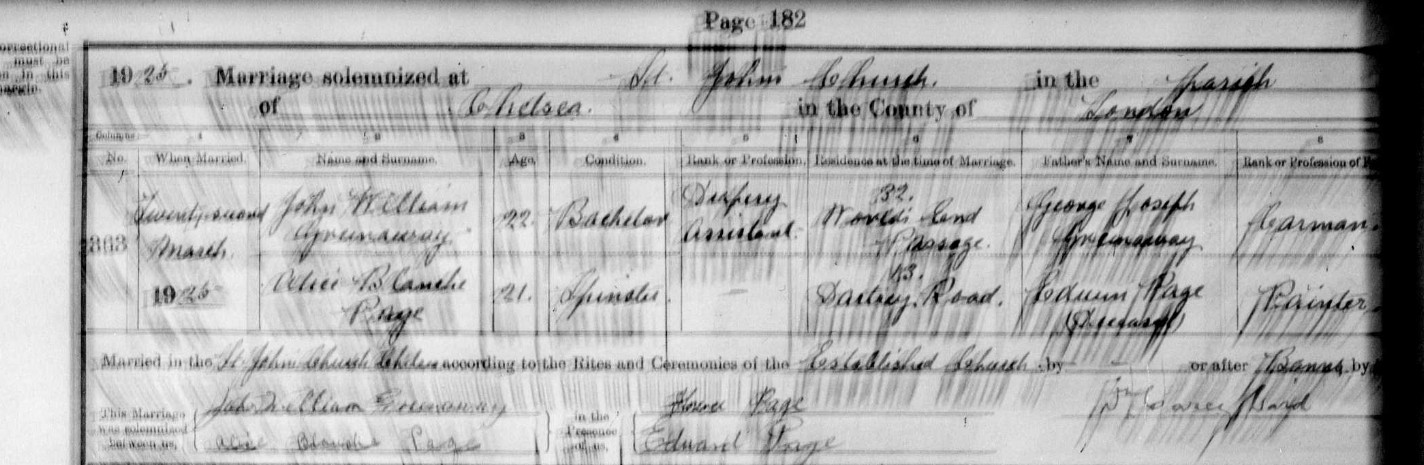 Page 182
1925. Marriage solemnized at St. John's Church. in the Parish
of Chelsea. in the County of London
Columns 1 2 3 4 5 6 7 8
No. When Married. Name and Surname. Age. Condition. Rank or Profession. Residence at the time of Marriage. Father's Name and Surname. Rank or Profession of
363 Twenty-second March 1925 John William Greenaway 22. Bachelor Drapery Assistant. 32. Worlds End Passage. George Joseph Greenaway Carman
Alice Blanche Page 21. Spinster — 43. Dartrey Road. Edwin Page (Deceased) Painter
Married in the St. John's Church Chelsea according to the Rites and Ceremonies of the Established Church by — or after Banns by
This Marriage was solemnized between us, John William Greenaway Alice Blanche Page in the Presence of us, Page Edward Page